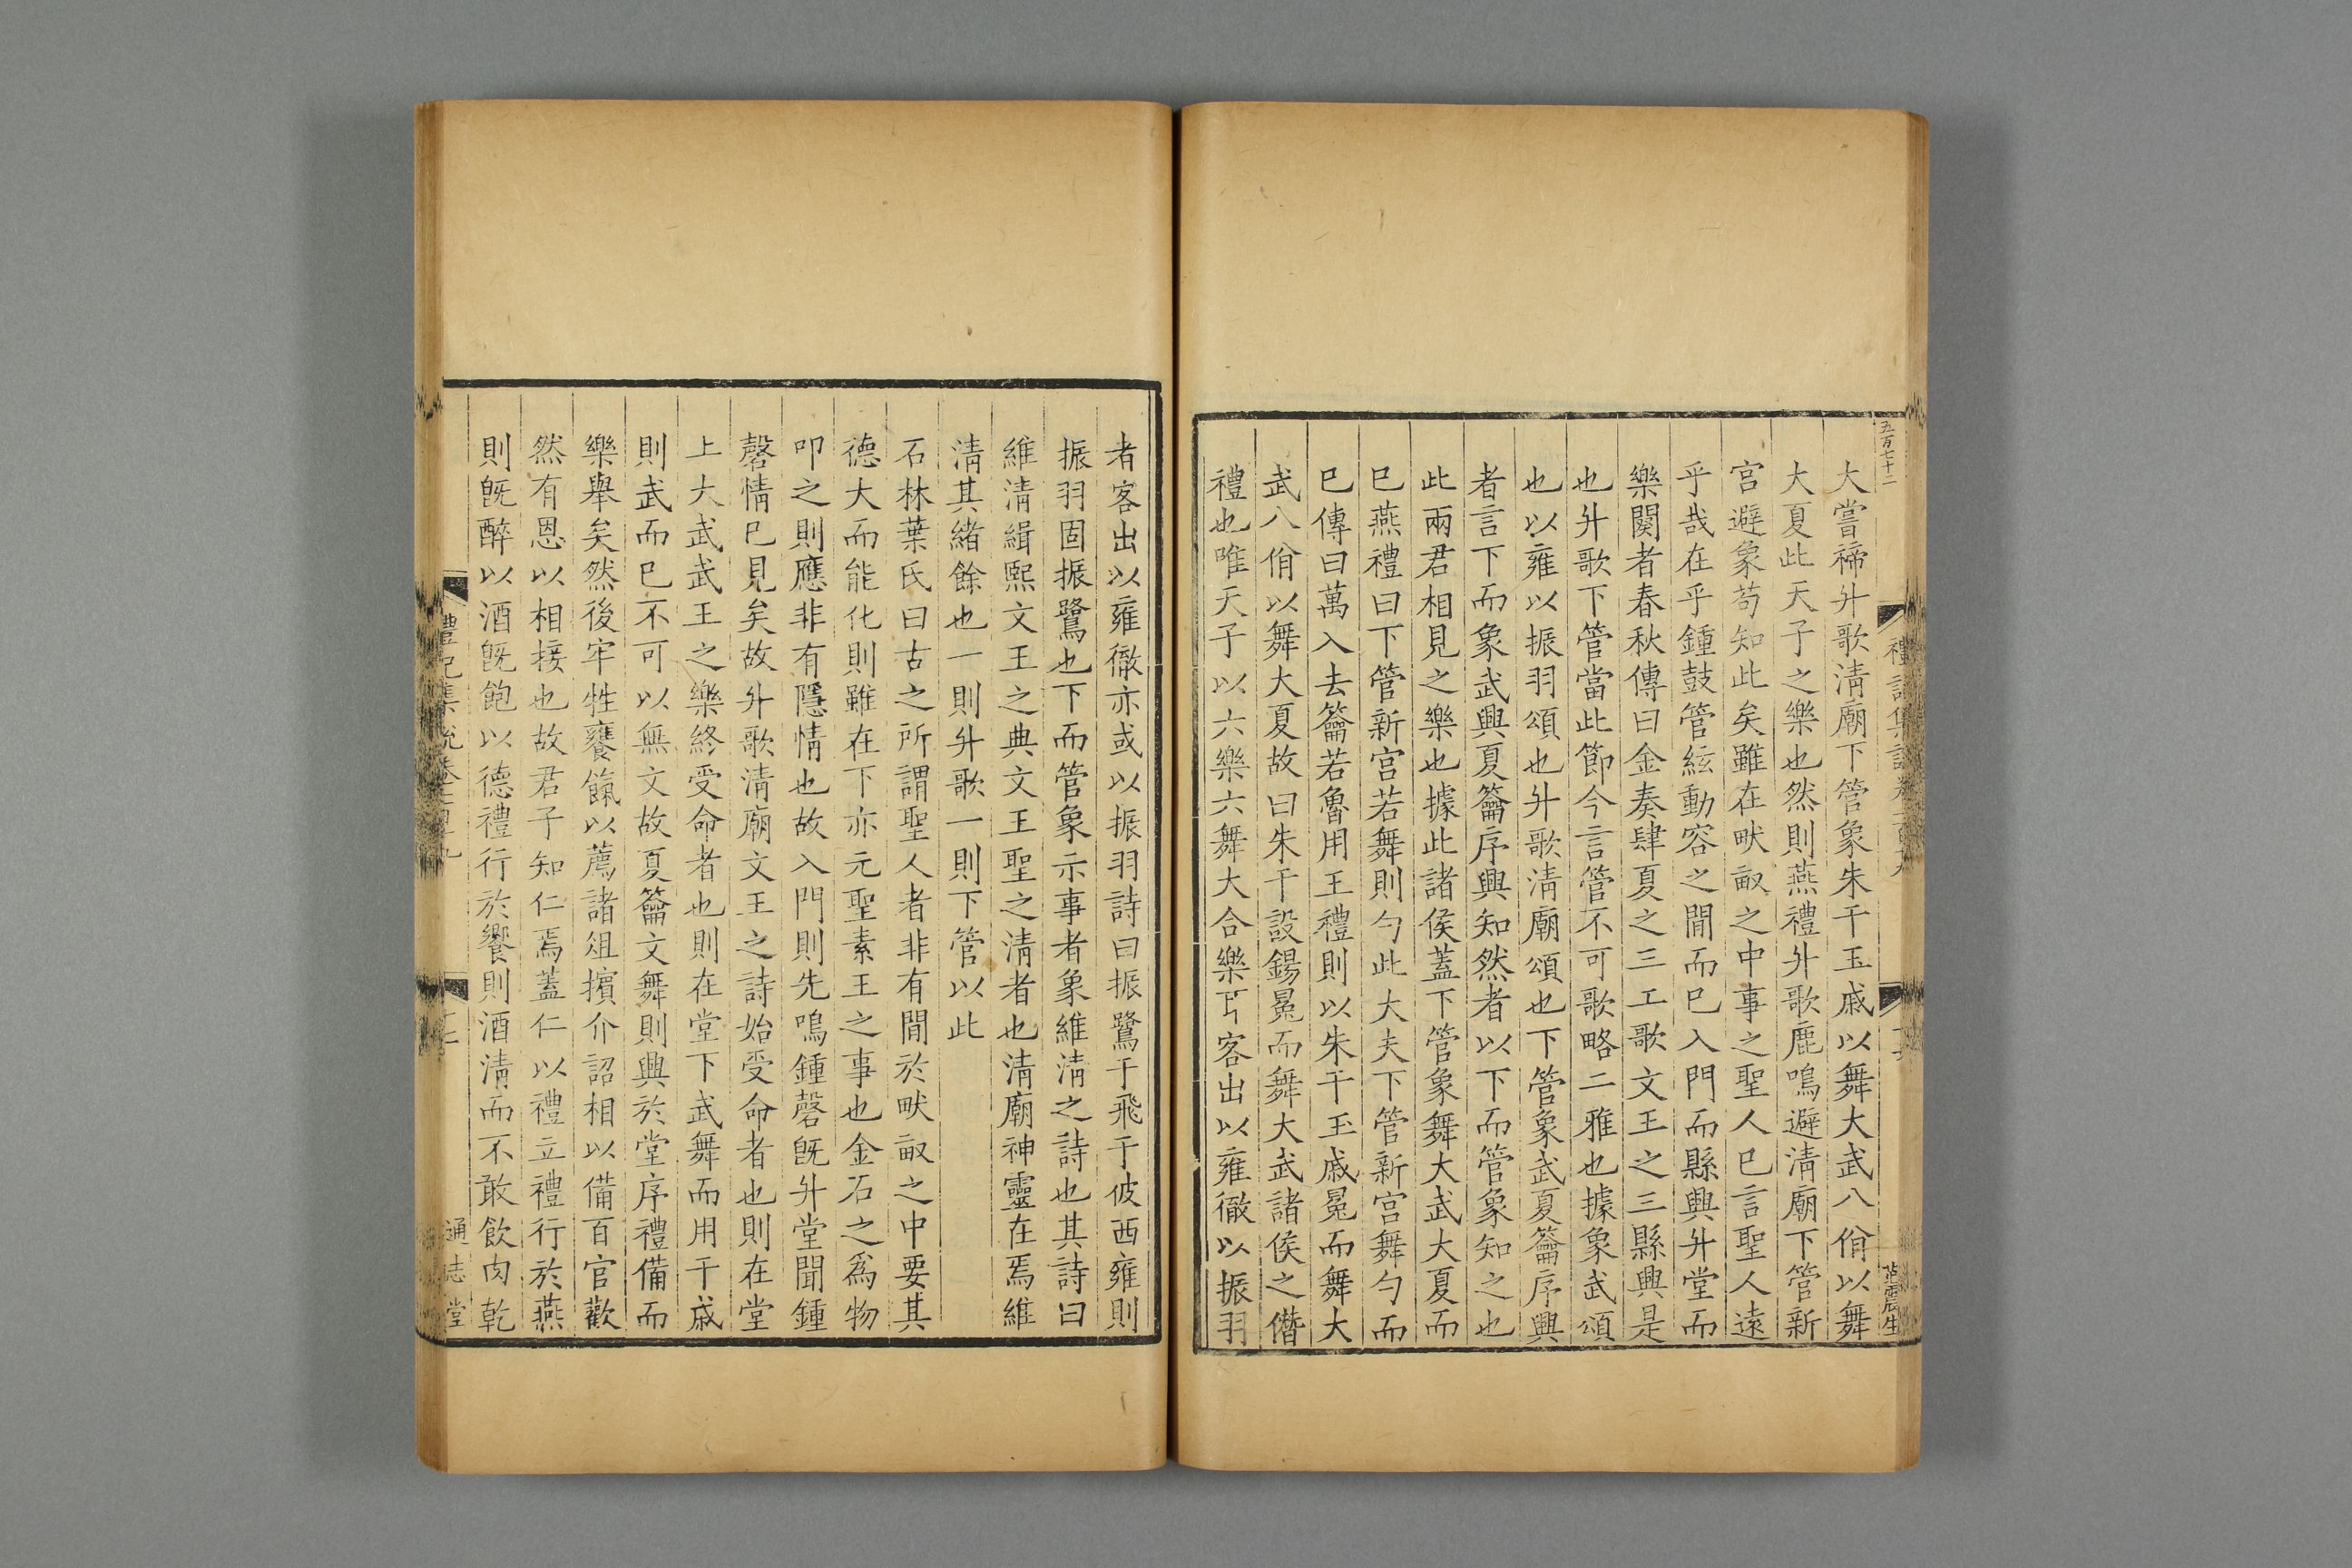 五百七十二
大嘗禘升歌淸廟下管象朱干玉戚以舞大武八佾以舞
大夏此天子之樂也然則燕禮升歌鹿鳴避淸廟下管新
宮避象苟知此矣雖在畎畝之中事之聖人巳言聖人遠
乎哉在乎鍾鼓管絃動容之閒而巳入門而縣興升堂而
樂闋者春秋傳曰金奏肆夏之三工歌文王之三縣興是
也升歌下管當此節今言管不可歌略二雅也據象武頌
也以雍以振羽頌也升歌淸廟頌也下管象武夏籥序興
者言下而象武興夏籥序興知然者以下而管象知之也
此兩君相見之樂也據此諸侯蓋下管象舞大武大夏而
巳燕禮曰下管新宮若舞則勺此大夫下管新宮舞勺而
巳傳曰萬入去籥若魯用王禮則以朱干玉戚冕而舞大
武八佾以舞大夏故曰朱干設錫冕而舞大武諸侯之僭
禮也唯天子以六樂六舞大合樂客出以雍徹以振羽
范震生
者客出以雍徹亦或以振羽詩曰振鷺于飛于彼西雍則
振羽固振鷺也下而管象示事者象維淸之詩也其詩曰
維淸緝熙文王之典文王聖之淸者也淸廟神靈在焉維
淸其緒餘也一則升歌一則下管以此
石林葉氏曰古之所謂聖人者非有閒於畎畝之中要其
德大而能化則雖在下亦元聖素王之事也金石之爲物
叩之則應非有隱情也故入門則先鳴鍾磬旣升堂聞鍾
磬情巳見矣故升歌淸廟文王之詩始受命者也則在堂
上大武武王之樂終受命者也則在堂下武舞而用干戚
則武而巳不可以無文故夏籥文舞則興於堂序禮備而
樂舉矣然後牢牲饔餼以薦諸俎擯介詔相以備百官歡
然有恩以相接也故君子知仁焉蓋仁以禮立禮行於燕
則旣醉以酒旣飽以德禮行於饗則酒淸而不敢飲肉乾
通志堂